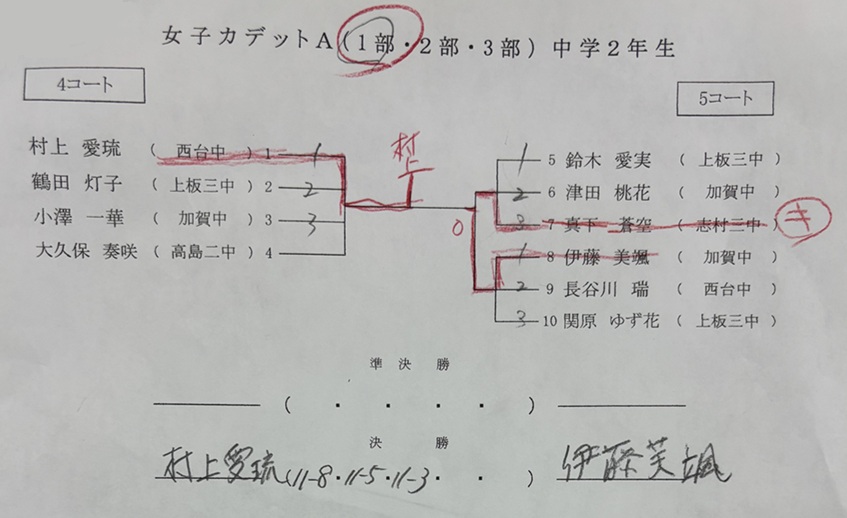 女子カデットA(1部・2部・3部)中学2年生
4コート
5コート
村上 愛琉 (西台中) 1 1
鶴田 灯子 (上板三中) 2 2
小澤 一華 (加賀中) 3 3
大久保 奏咲 (高島二中) 4
村上
0
1 5 鈴木 愛実 (上板三中)
2 6 津田 桃花 (加賀中)
3 7 真下 蒼空 (志村三中) キ
1 8 伊藤 美颯 (加賀中)
2 9 長谷川 瑞 (西台中)
3 10 関原 ゆず花 (上板三中)
準決勝
( ・ ・ ・ ・ )
決勝
村上愛琉 (11-8・11-5・11-3・ ・ ) 伊藤美颯